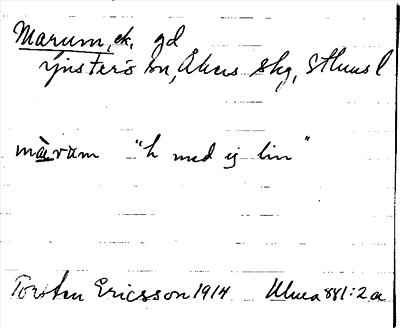 Marum, ek, gd
Ljusterö sn, Åkers skg, Sthms l
màrvam "h med ij lin"
Torsten Ericsson 1914 Ulma 881:2a